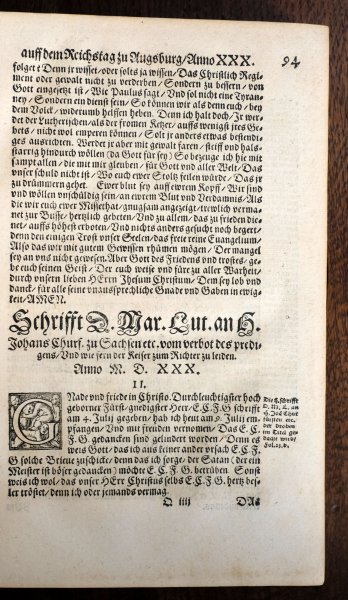 auff dem Reichstag zu Augsburg/Anno XXX.
94
folget? Denn jr wisset/oder solts ja wissen/Das Christlich Regi-
ment oder gewalt nicht zu verderben/Sondern zu bessern/von
Gott eingesetzt ist/Wie Paulus sagt/Vnd sol nicht eine Tyran-
ney/Sondern ein dienst sein/So können wir als denn euch/bey
dem Volck/widerumb helffen heben. Denn ich halt doch/Jr wer-
det der Lutherischen/als der fromen Ketzer/auffs wenigst jres Ge-
bets/nicht wol emperen können/Solt jr anders etwas bestendi-
ges ausrichten. Werdet jr aber mit gewalt faren/steiff vnd hals-
starrig hindurch wöllen (da Gott für sey) So bezeuge ich hie mit
sampt allen/die mit mir gleuben/für Gott vnd aller Welt/Das
vnser schuld nicht ist/Wo euch ewer Stoltz feilen würde/Das jr
zu drümmern gehet. Ewer blut sey auff ewrem Kopff/Wir sind
vnd wöllen vnschüldig sein/an ewrem Blut vnd Verdamnis/Als
die wir euch ewer Missethat/gnugsam angezeigt/trewlich verma-
net zur Busse/hertzlich gebeten/Vnd zu allem/das zu frieden die-
net/auffs höhest erboten/Vnd nichts anders gesucht noch begert/
denn den einigen Trost vnser Seelen/das freie reine Euangelium/
Also das wir mit gutem Gewissen rhümen mögen/Der mangel
sey an vns nicht gewesen. Aber Gott des Friedens vnd trostes/ge-
be euch seinen Geist/Der euch weise vnd füre zu aller Warheit/
durch vnsern lieben HErrn Jhesum Christum/Dem sey lob vnd
danck/für alle seine vnaussprechliche Gnade vnd Gaben in ewig-
keit/AMEN.
Schrifft D. Mar. Lut. an H.
Johans Churf. zu Sachsen etc. vom verbot des predi-
gens/Vnd wie fern der Keiser zum Richter zu leiden.
Anno M. D. XXX.
II.
GNade vnd friede in Christo. Durchleuchtigster hoch-
geborner Fürst/gnedigster Herr/E.C.F.G schrifft
am 4. Julij gegeben/hab ich heut am 9. Julij em-
pfangen/Vnd mit freuden vernomen/Das E.C.
F.G. gedancken sind gelindert worden/Denn es
weis Gott/das ich aus keiner ander vrsach E.C.F.
G solche Brieue zuschicke/denn das ich sorge/der Satan (der ein
Meister ist böser gedancken) möchte E.C.F.G. betrüben. Sonst
weis ich wol/das vnser HErr Christus selbs E.C.F.G. hertz bes-
ser tröstet/denn ich oder jemands vermag.
Q iiij
DAs